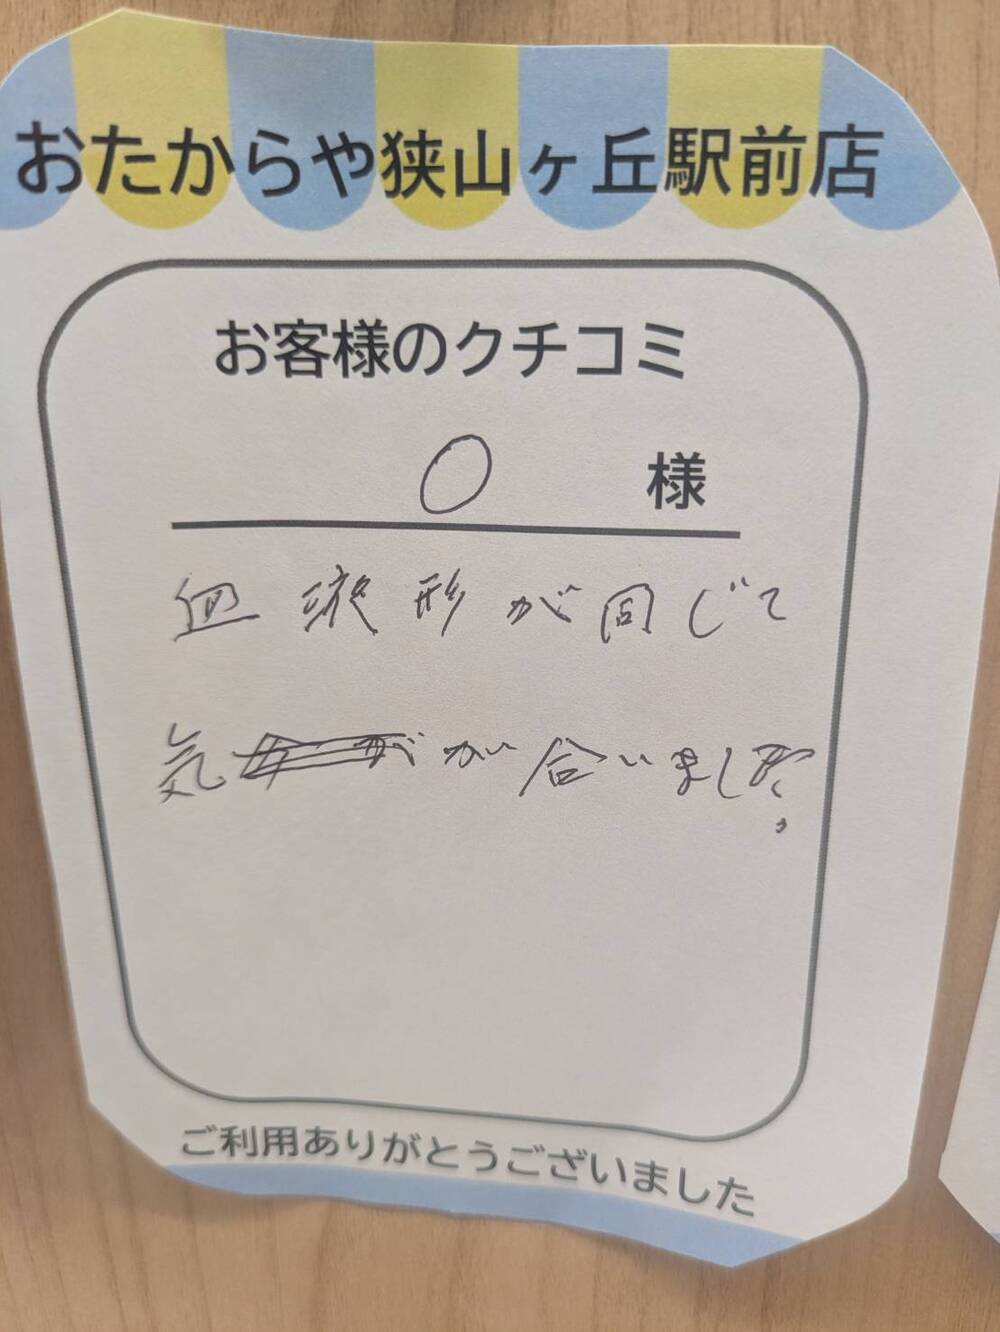 おたからや狭山ヶ丘駅前店
お客様のクチコミ
O 様
血液形が同じで
気がが合いました。
ご利用ありがとうございました